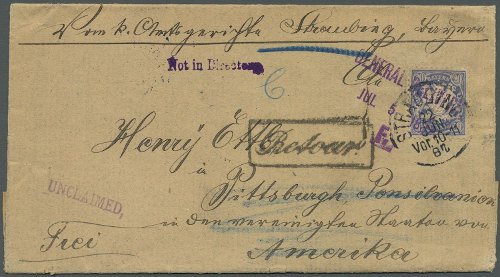 Vom k. Amtsgerichte Straubing, Bayern
Not in Directory
GENERAL
JUL 5
STRAUBING
22
JUN
Vor. 10-11
82
Henry Ett
Retour
in
Pittsburgh Pensilvanien
UNCLAIMED,
in den vereinigten Staaten von
Frei
Amerika